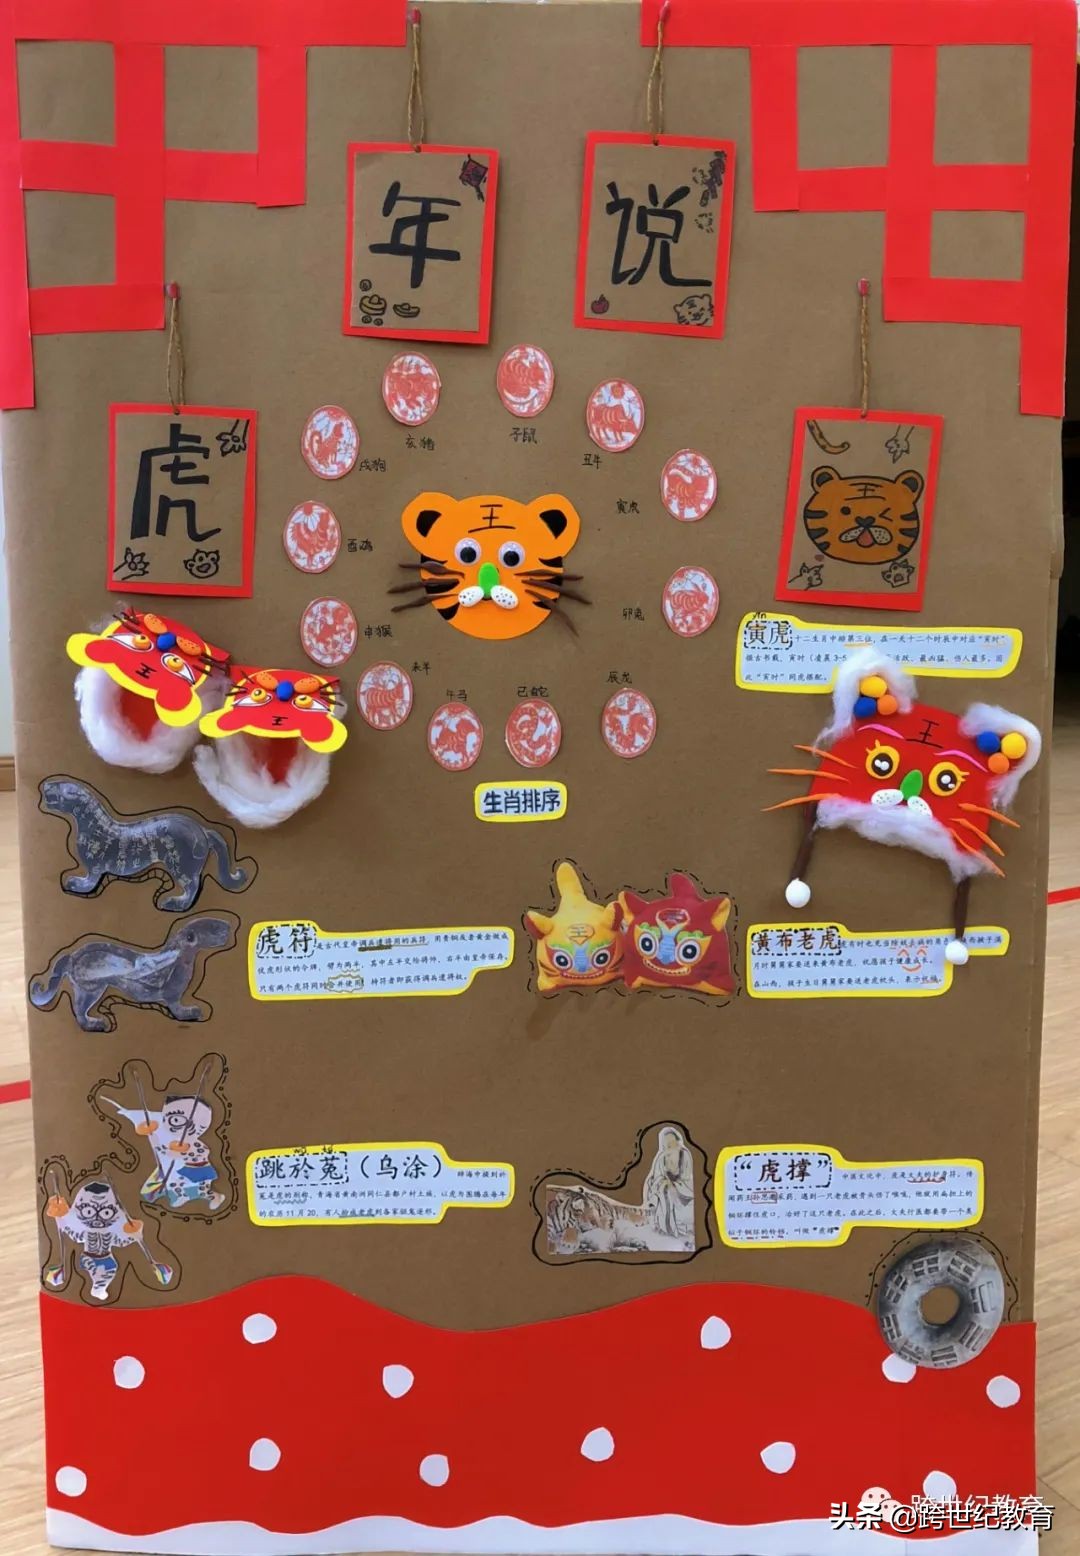 年
说
虎
王
亥猪
子鼠
丑牛
戌狗
寅虎
酉鸡
卯兔
申猴
未羊
午马
巳蛇
辰龙
王
王
王
王
生肖排序
寅虎 十二生肖中排第三位，在一天十二个时辰中对应“寅时”
据古书载，寅时（凌晨3-5 最凶猛、伤人最多。因
此“寅时”同虎搭配。
虎符 是古代皇帝调兵遣将用的兵符，用青铜或者黄金做成
伏虎形状的令牌，劈为两半，其中左半交给将帅，右半由皇帝保存。
只有两个虎符同时合并使用，持符者即获得调兵遣将权。
黄布老虎
月时舅舅家要送来黄布老虎，祝愿孩子健康成长。
在山西，孩子生日舅舅家要送老虎枕头，表示祝福。
跳於菟（乌涂） 辞海中提到於
菟是虎的别称，青海省黄南州同仁县都户村土族，以虎为图腾在每年
的农历11月20，有人扮成老虎到各家驱鬼逐邪。
“虎撑” 中国文化中，虎是大夫的护身符，传
闻药王孙思邈采药，遇到一只老虎被骨头怪了喉咙，他便用扁担上的
铜环撑住虎口，治好了这只老虎。在此之后，大夫行医都要带一个类
似于铜环的铃铛，叫做“虎撑”
跨世纪教育
头条 @跨世纪教育